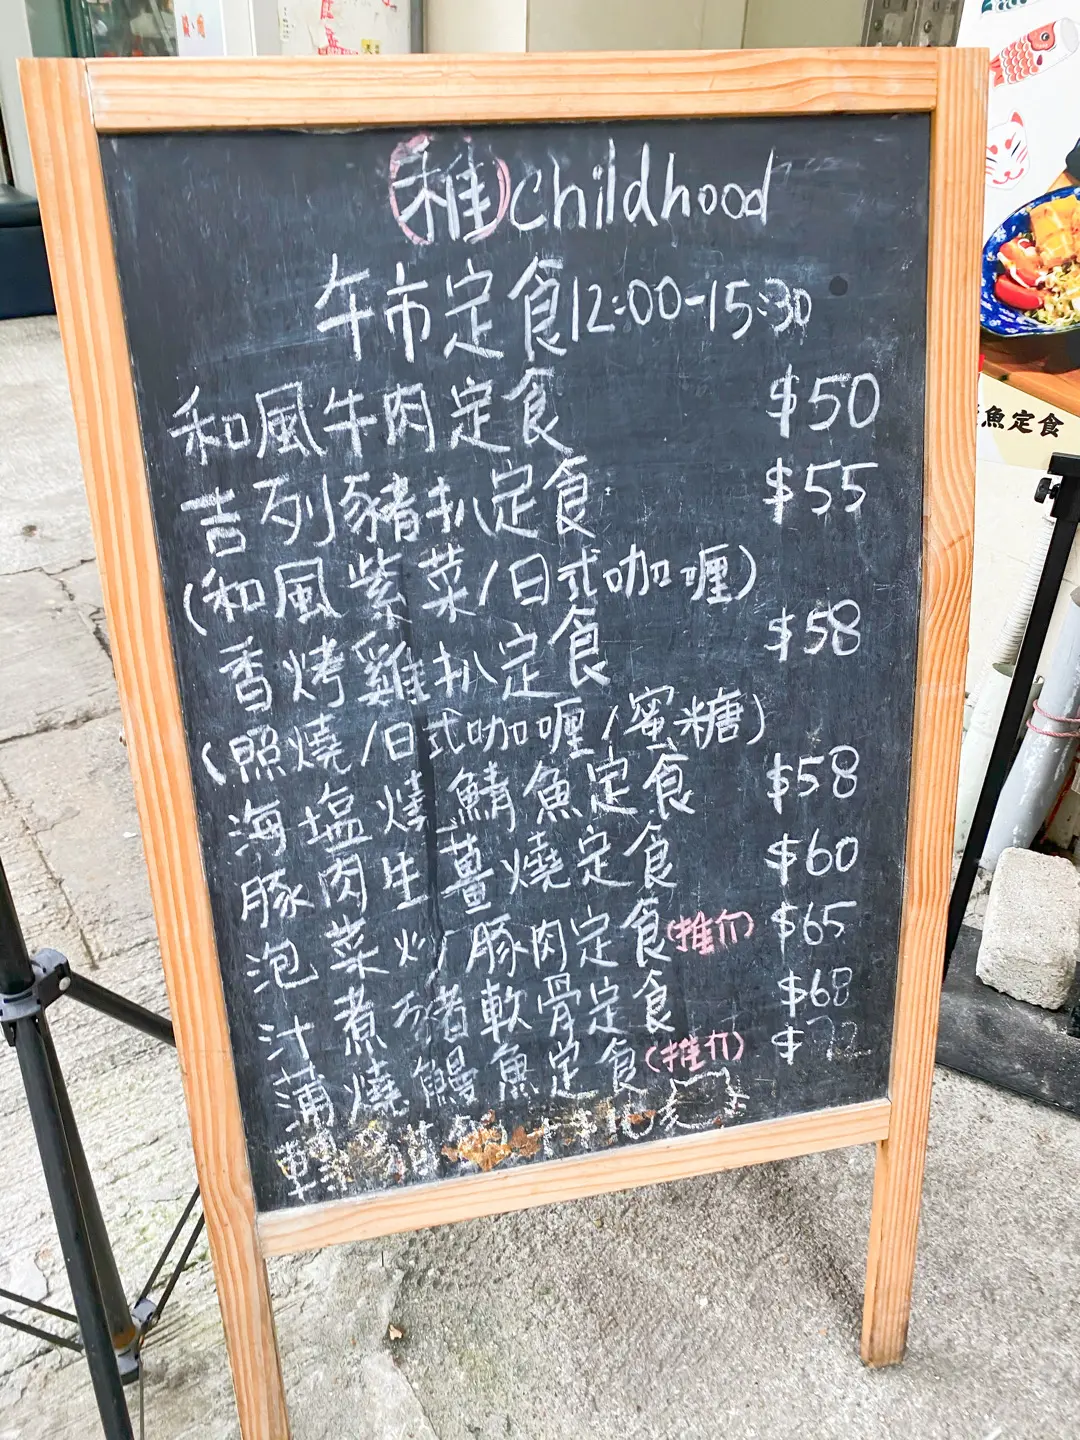 稚childhood
午市定食12:00-15:30
和風牛肉定食 $50
吉列豬扒定食 $55
(和風紫菜/日式咖喱)
香烤雞扒定食 $58
(照燒/日式咖喱/蜜糖)
海塩燒鯖魚定食 $58
豚肉生薑燒定食 $60
泡菜炒豚肉定食(推介) $65
汁煮豬軟骨定食 $68
蒲燒鰻魚定食(推介) $72
魚定食